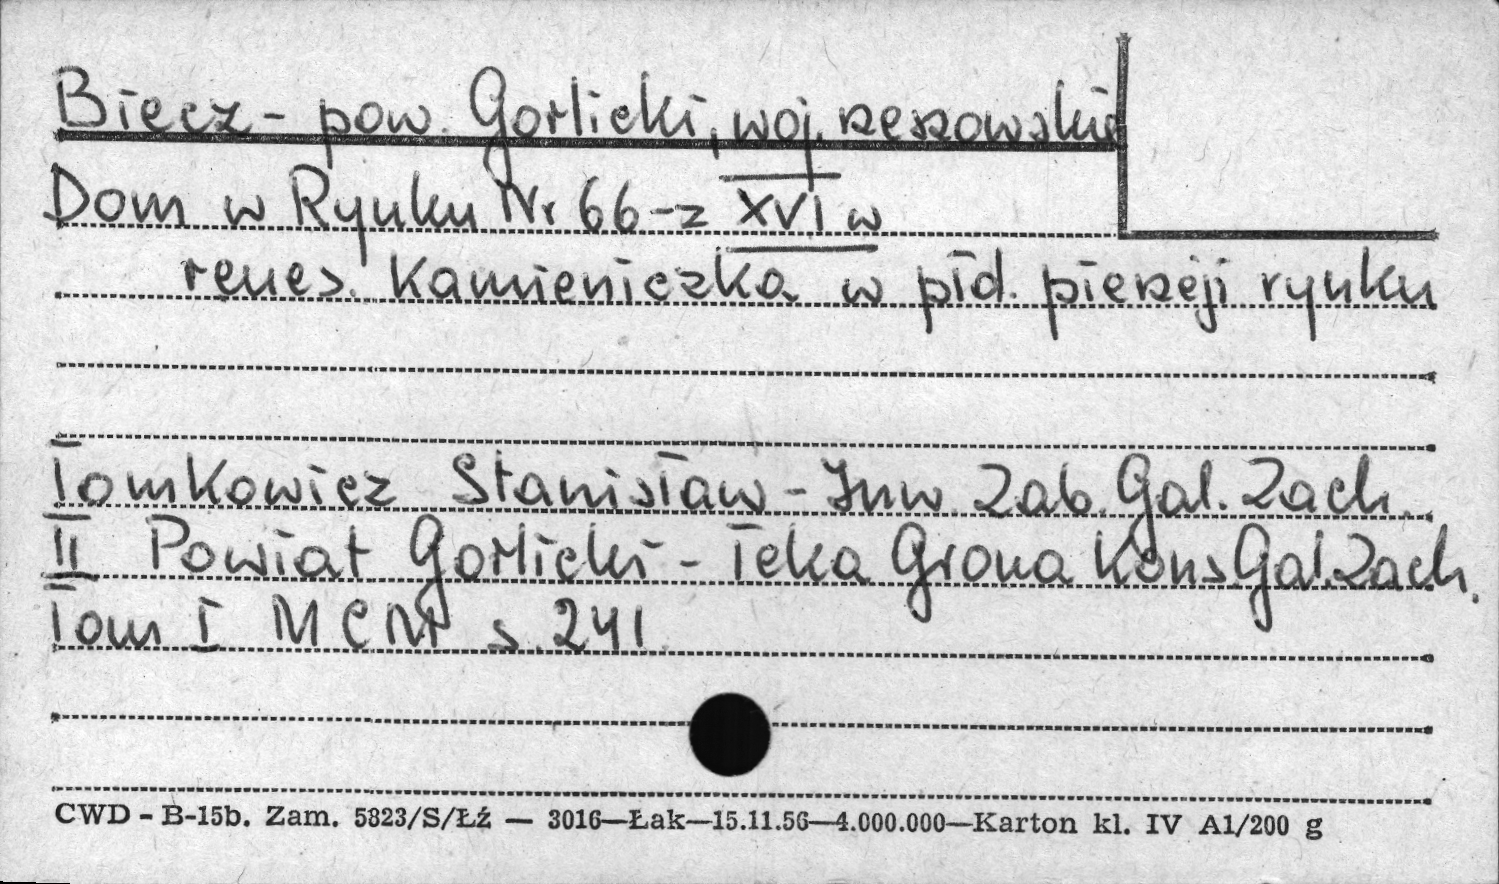 Biecz - pow. Gorlicki, woj. rzeszowskie
Dom w Rynku Nr 66 - z XVI w
renes. Kamieniczka w płd. pierzeji rynku
Tomkowicz Stanisław - Inw. Zab. Gal. Zach.
II Powiat Gorlicki - Teka Grona Kons Gal. Zach.
Tom I MCM s. 241.
CWD - B-15b. Zam. 5823/S/Łź — 3016—Łak—15.11.56—4.000.000—Karton kl. IV A1/200 g